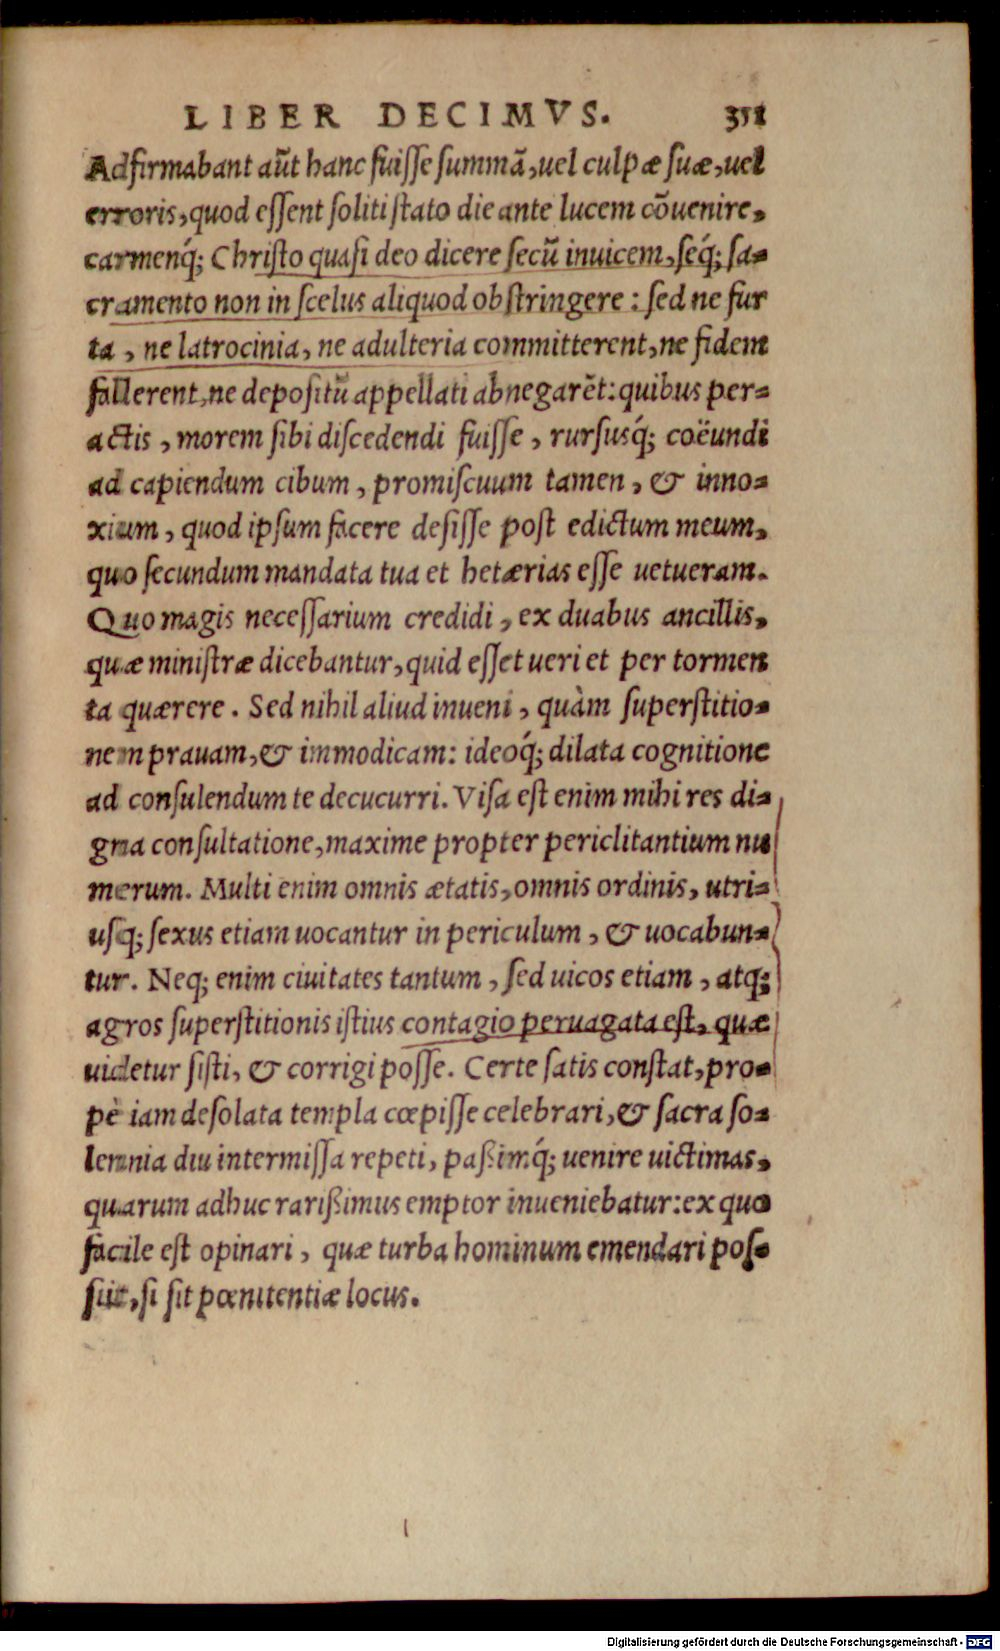 LIBER DECIMVS. 351
Adfirmabant aũt hanc fuiſſe summã, uel culpæ suæ, uel
erroris, quod eſſent ſoliti ſtato die ante lucem cõuenire,
carmenq́; Chriſto quaſi deo dicere ſecũ inuicem, ſeq́; ſa-
cramento non in ſcelus aliquod obſtringere: ſed ne fur
ta, ne latrocinia, ne adulteria committerent, ne fidem
fallerent, ne depoſitũ appellati abnegarẽt: quibus per-
actis, morem ſibi diſcedendi fuiſſe, rurſusq́; coëundi
ad capiendum cibum, promiſcuum tamen, & inno-
xium, quod ipſum facere deſiſſe poſt edictum meum,
quo ſecundum mandata tua et hetærias eſſe uetueram.
Quo magis neceſſarium credidi, ex duabus ancillis,
quæ miniſtræ dicebantur, quid eſſet ueri et per tormen
ta quærere. Sed nihil aliud inueni, quàm ſuperſtitio-
nem prauam, & immodicam: ideoq́; dilata cognitione
ad conſulendum te decucurri. Viſa eſt enim mihi res di-
gna conſultatione, maxime propter periclitantium nu
merum. Multi enim omnis ætatis, omnis ordinis, utri-
uſq; ſexus etiam uocantur in periculum, & uocabun-
tur. Neq; enim ciuitates tantum, ſed uicos etiam, atq;
agros ſuperſtitionis iſtius contagio peruagata eſt, quæ
uidetur ſiſti, & corrigi poſſe. Certe ſatis conſtat, pro-
pè iam deſolata templa cœpiſſe celebrari, & ſacra ſo-
lemnia diu intermiſſa repeti, paßimq́; uenire uictimas,
quarum adhuc rarißimus emptor inueniebatur: ex quo
facile eſt opinari, quæ turba hominum emendari poſ-
ſit, ſi ſit pœnitentiæ locus.
Digitalisierung gefördert durch die Deutsche Forschungsgemeinschaft - DFG